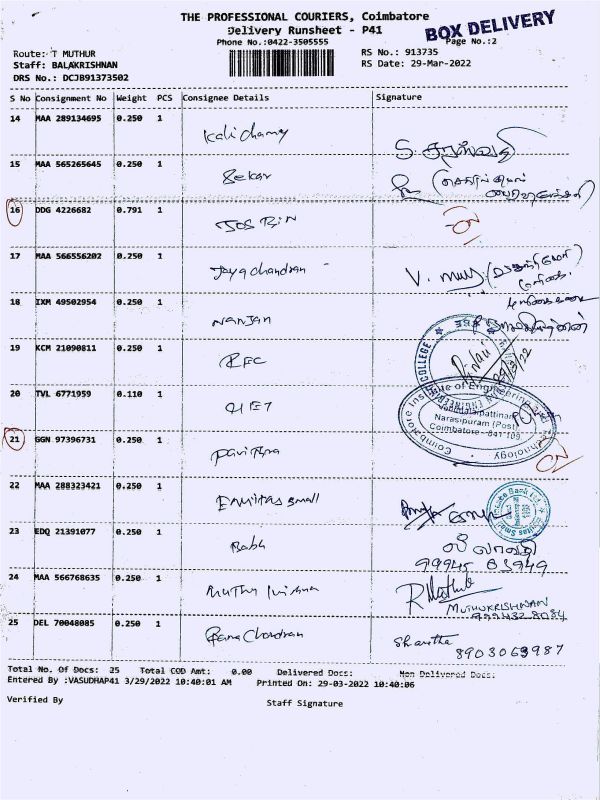 THE PROFESSIONAL COURIERS, Coimbatore
Delivery Runsheet - P41
BOX DELIVERY
Phone No.:0422-3505555
Page No.:2
Route: T MUTHUR
RS No.: 913735
Staff: BALAKRISHNAN
RS Date: 29-Mar-2022
DRS No.: DCJB91373502
S No Consignment No Weight PCS Consignee Details Signature
14 MAA 289134695 0.250 1 Kalichamy S. சரஸ்வதி
15 MAA 565265645 0.250 1 Sekar
16 DDG 4226682 0.791 1 JOSBIN
17 MAA 566556202 0.250 1 Jayachandran V.
18 IXM 49502954 0.250 1 Nanjan
19 KCM 21090811 0.250 1 REC 29/3/22
COLLEGE
20 TVL 6771959 0.110 1
Coimbatore Institute of Engineering and Technology
Narasipuram (Post)
Coimbatore - 641 109
21 GGN 97396731 0.250 1 Pavithra
22 MAA 288323421 0.250 1 Equitas small
23 EDQ 21391077 0.250 1 Babu
99945 83949
24 MAA 566768635 0.250 1 Muthu Krishna
MUTHUKRISHNAN
25 DEL 70048085 0.250 1 Rama Chandran Sharitha
8903063987
Total No. Of Docs: 25 Total COD Amt: 0.00 Delivered Docs: Non Delivered Docs:
Entered By :VASUDHAP41 3/29/2022 10:40:01 AM Printed On: 29-03-2022 10:40:06
Verified By Staff Signature